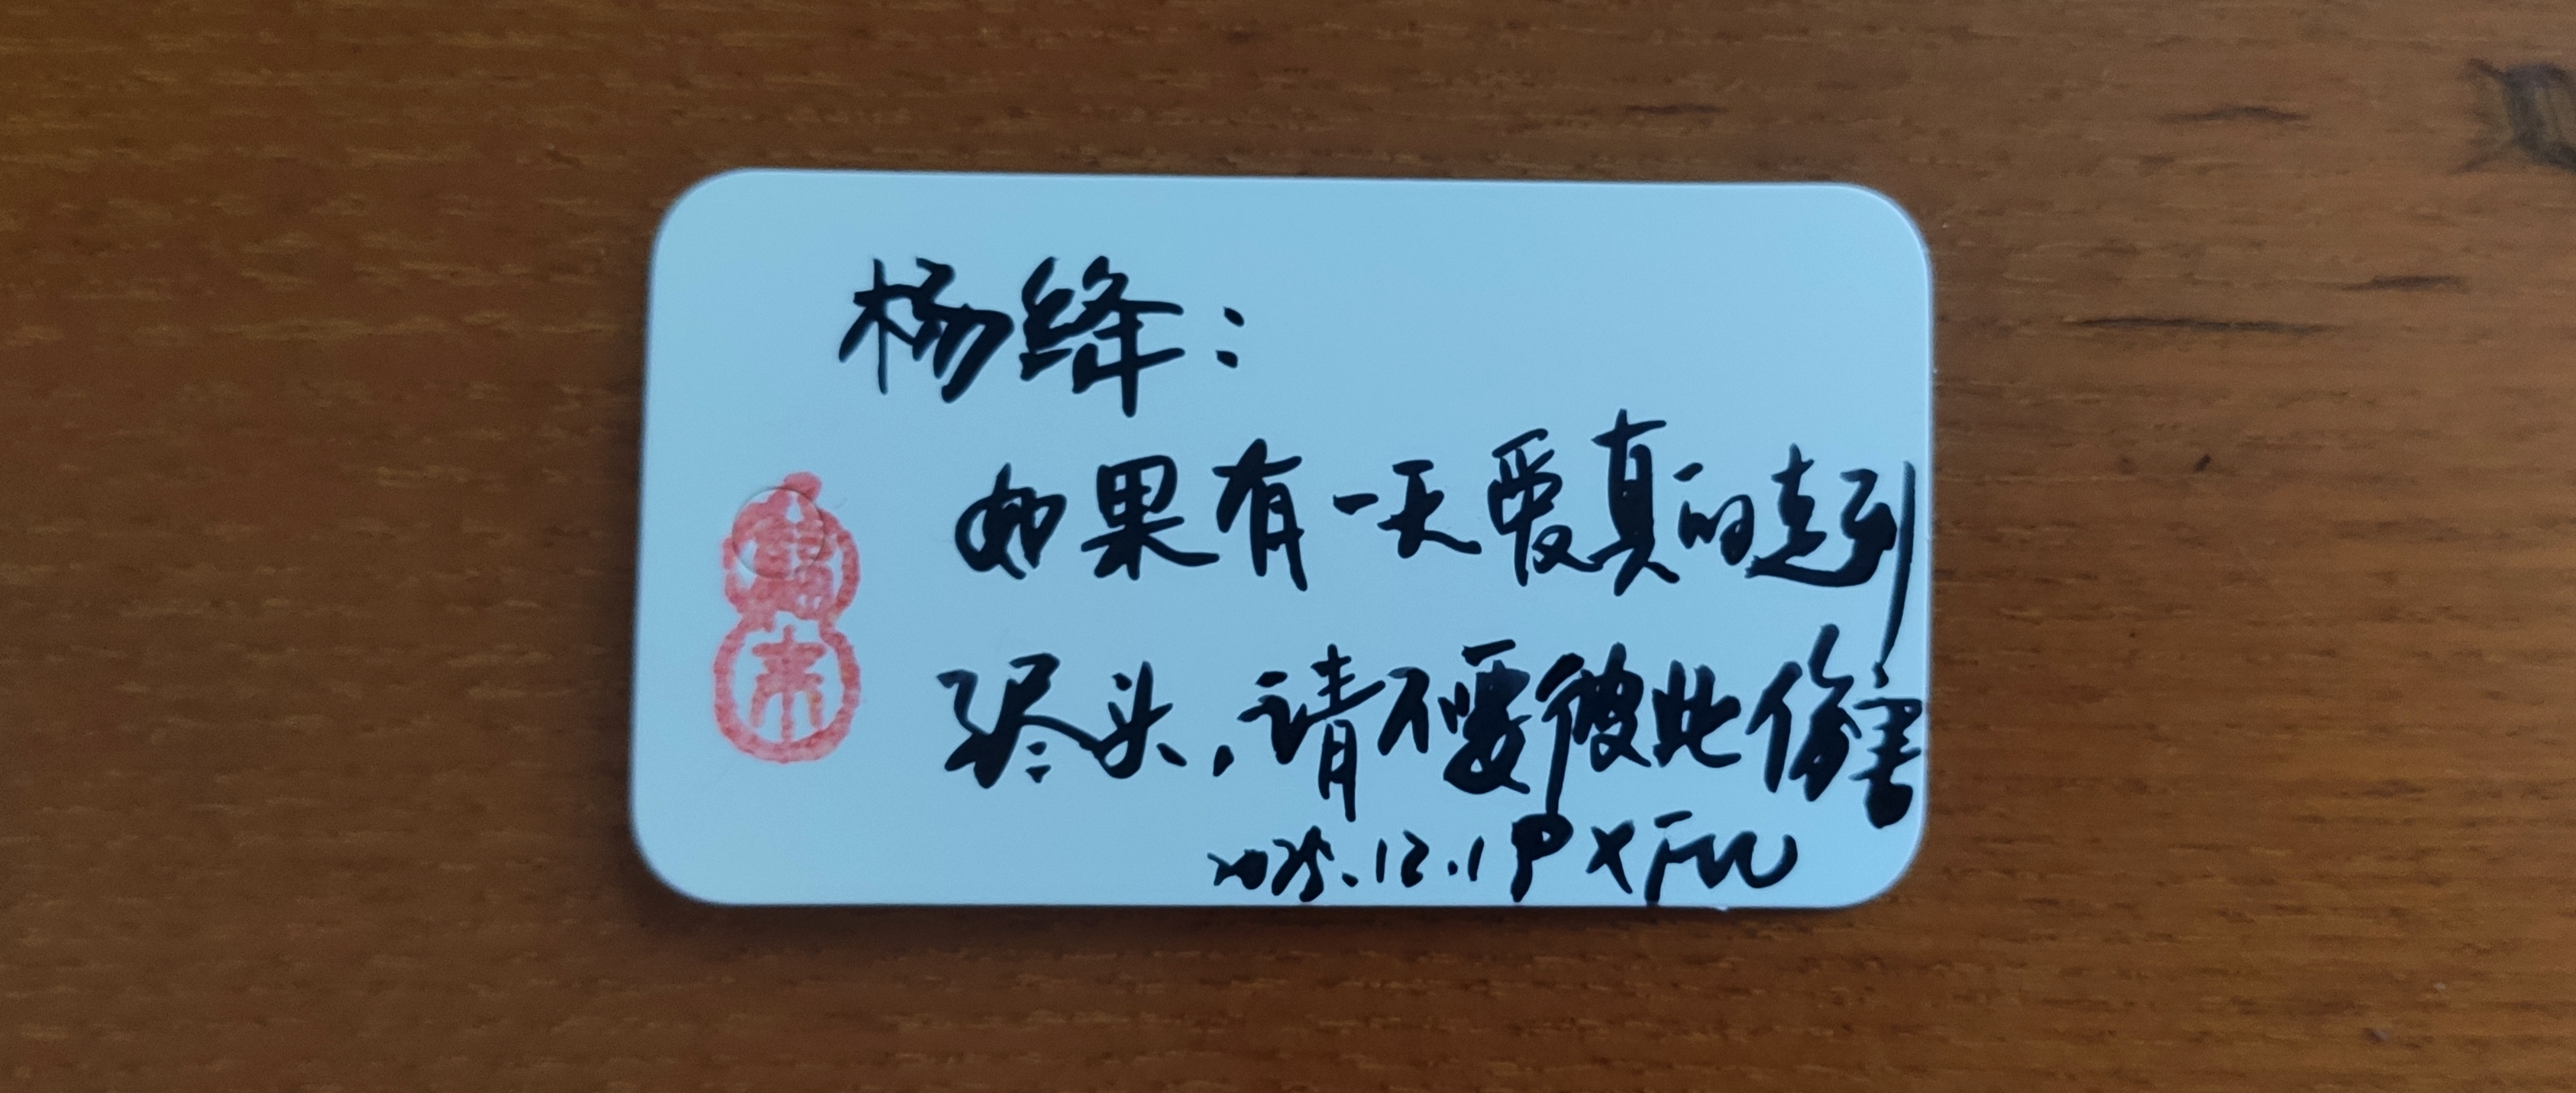 杨绛：
如果有一天爱真的走到
尽头，请不要彼此伤害
2025.12.19
来